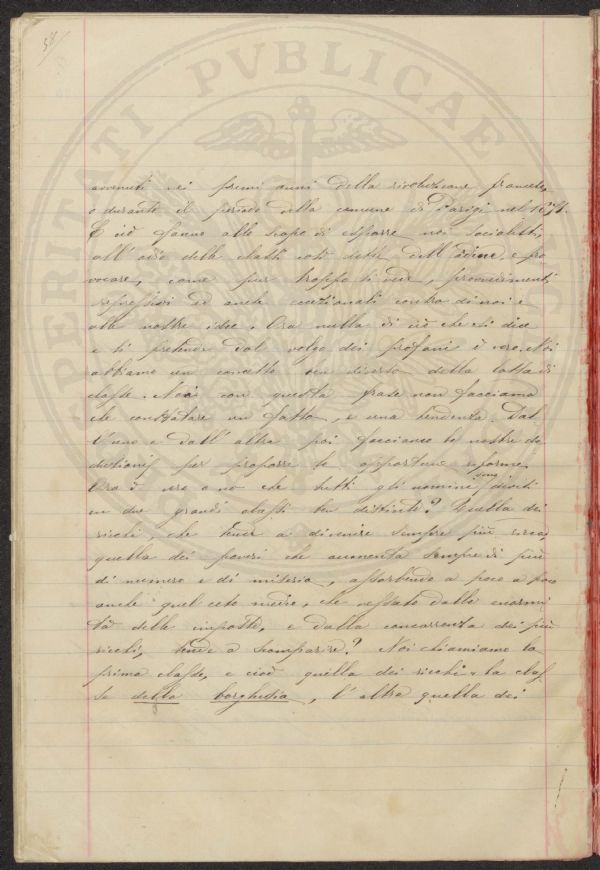 58
PERITATI PVBLICAE
avvenuti nei primi anni della rivoluzione francese
o durante il periodo della comune di Parigi nel 1871.
E ciò fanno allo scopo di esporre noi socialisti
all' odio delle classi così dette dell' ordine, e pro
vocare, come pur troppo si vede, provvedimenti
repressivi ed anche eccezionali contro di noi e
alle nostre idee. Ora nulla di ciò che si dice
e si pretende dal volgo dei profani è vero. Noi
abbiamo un concetto ben diverso della lotta di
classe. Noi con questa frase non facciamo
che constatare un fatto, e una tendenza. Dal
l'uno e dall' altra poi facciamo le nostre de
duzioni per proporre le opportune riforme.
Ora è vero o no che tutti gli uomini sono divisi
in due grandi classi ben distinte? Quella dei
ricchi, che tende a divenire sempre più ricca,
quella dei poveri che aumenta sempre di più
di numero e di miseria, assorbendo a poco a poco
anche quel ceto medio, che vessato dalle enormi
tà delle imposte, e dalla concorrenza dei più
ricchi, tende a scomparire? Noi chiamiamo la
prima classe, e cioè quella dei ricchi, la clas
se della borghesia, l'altra quella dei